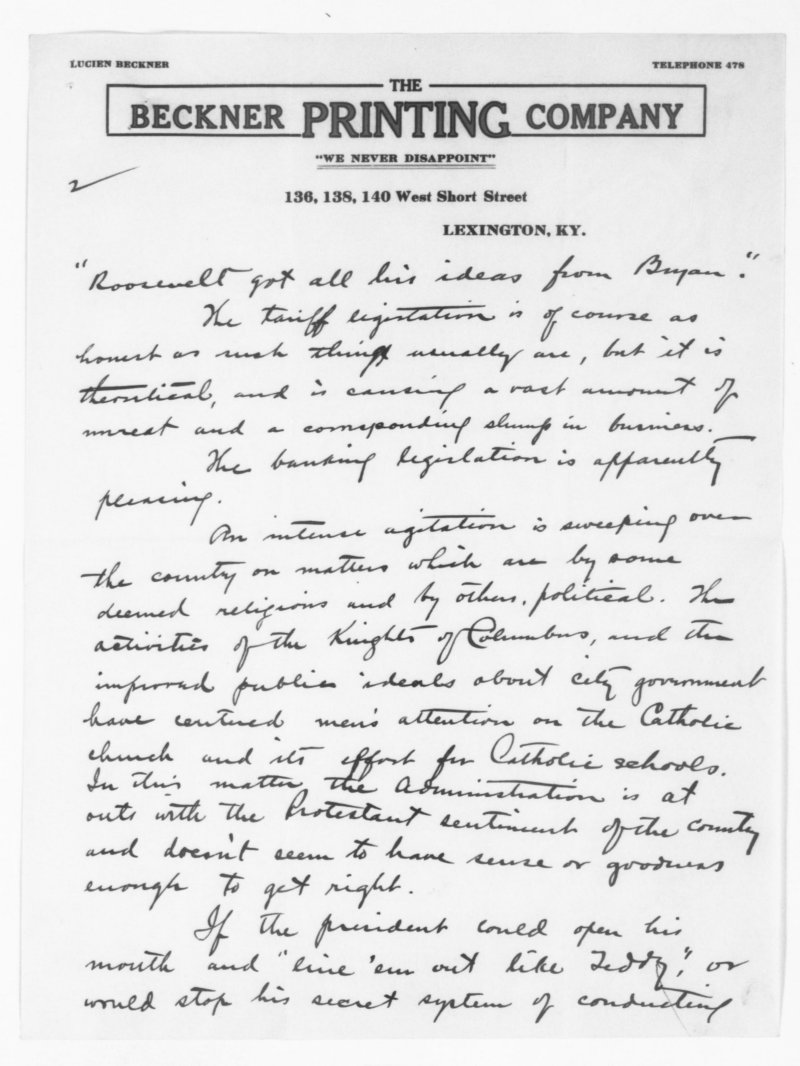 LUCIEN BECKNER
TELEPHONE 478
THE
BECKNER PRINTING COMPANY
"WE NEVER DISAPPOINT"
136, 138, 140 West Short Street
LEXINGTON, KY.
2
"Roosevelt got all his ideas from Bryan".
The tariff legislation is of course as
honest as such things usually are, but it is
theoritical, and is causing a vast amount of
unrest and a corresponding slump in business.
The banking legislation is apparently
pleasing.
An intense agitation is sweeping over
the country on matters which are by some
deemed religious and by others, political. The
activities of the Knights of Columbus, and the
improved public ideals about city government
have centered men's attention on the Catholic
church and its effort for Catholic schools.
In this matter the Administration is at
outs with the Protestant sentiment of the country
and doesn't seem to have sense or goodness
enough to get right.
If the president could open his
mouth and "line 'em out like Teddy", or
would stop his secret system of conducting